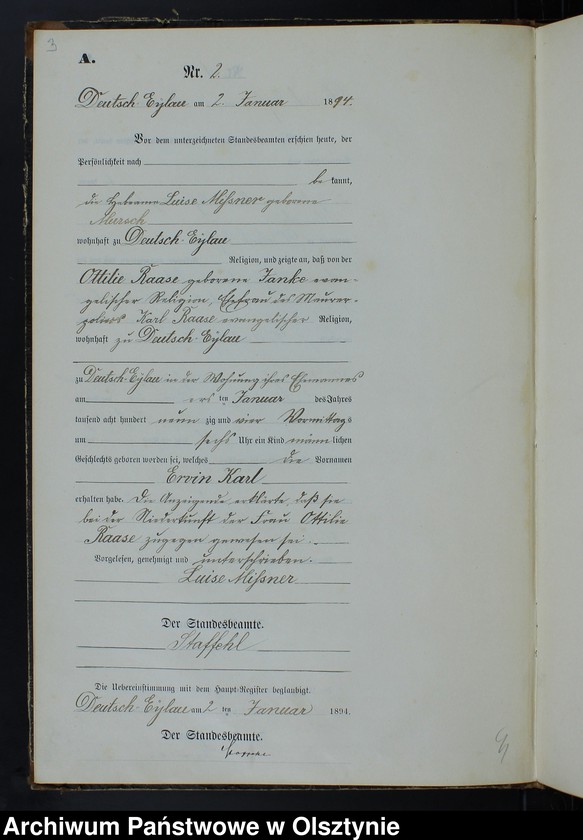 3
A.
Nr. 2.
Deutsch-Eylau am 2. Januar 1894.
Vor dem unterzeichneten Standesbeamten erschien heute, der
Persönlichkeit nach
be kannt,
die Hebeamme Luise Mißner geborene
wohnhaft zu Deutsch-Eylau
Religion, und zeigte an, daß von der
Ottilie Raase geborene Janke evan-
gelischer Religion, Ehefrau des Maurer-
poliers Karl Raase evangelischer Religion,
wohnhaft zu Deutsch-Eylau
zu Deutsch-Eylau in der Wohnung ihres Ehemannes
am ers ten Januar des Jahres
tausend acht hundert neun zig und vier Vormittags
um sechs Uhr ein Kind männ lichen
Geschlechts geboren worden sei, welches die Vornamen
Ervin Karl
erhalten habe. Die Anzeigende erklärte, daß sie
bei der Niederkunft der Frau Ottilie
Raase zugegen gewesen sei.
Vorgelesen, genehmigt und unterschrieben.
Luise Mißner
Der Standesbeamte.
Staffehl
Die Uebereinstimmung mit dem Haupt-Register beglaubigt.
Deutsch-Eylau am 2 ten Januar 1894.
Der Standesbeamte.
Archiwum Państwowe w Olsztynie